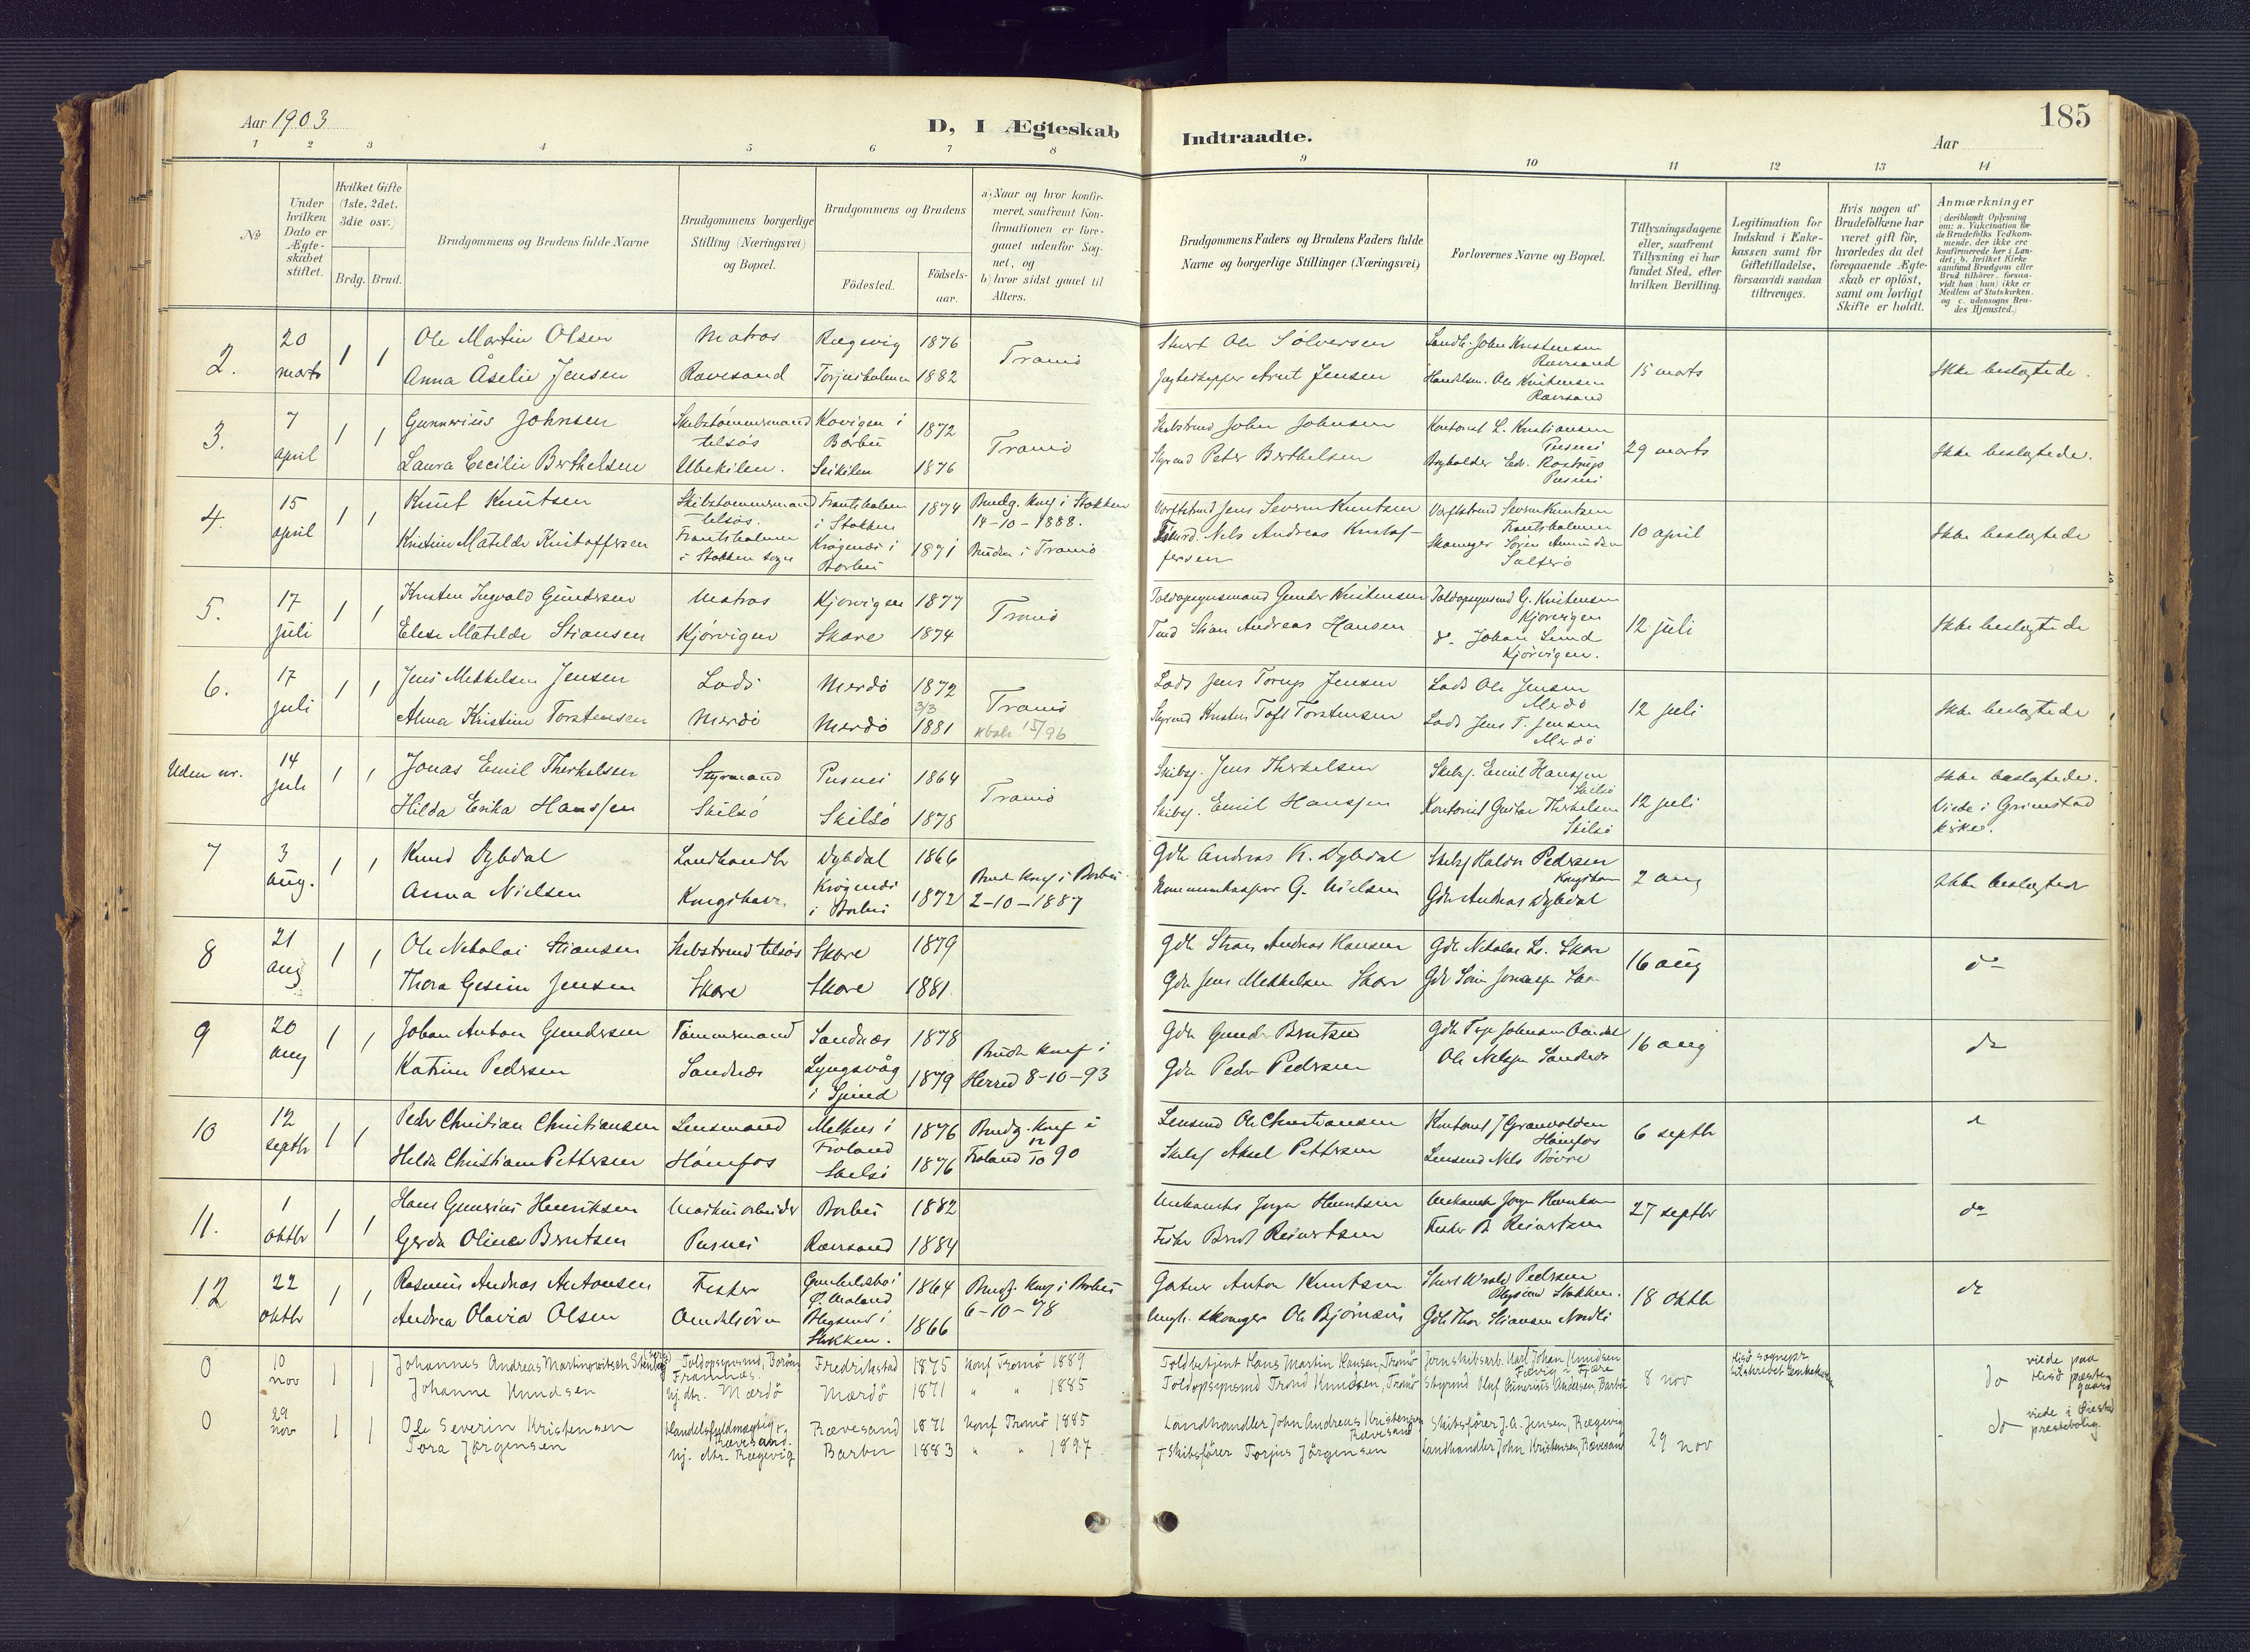 185
Aar 1903
D, I Ægteskab Indtraadte.
Aar
1 2 3 4 5 6 7 8 9 10 11 12 13 14
No
Under hvilken Dato er Ægteskabet stiftet.
Hvilket Gifte (1ste, 2det, 3die osv.)
Brdg. Brud.
Brudgommens og Brudens fulde Navne
Brudgommens borgerlige Stilling (Næringsvei) og Bopæl.
Brudgommens og Brudens
Födested.
Födsels-aar.
a) Naar og hvor konfirmeret, saafremt Konfirmationen er foregaaet udenfor Sognet, og
b) hvor sidst gaaet til Alters.
Brudgommens Faders og Brudens Faders fulde Navne og borgerlige Stillinger (Næringsvei)
Forlovernes Navne og Bopæl.
Tillysningsdagene eller, saafremt Tillysning ei har fundet Sted, efter hvilken Bevilling.
Legitimation for Indskud i Enkekassen samt for Giftetilladelse, forsaavidt saadan tiltrænges.
Hvis nogen af Brudefolkene har været gift för, hvorledes da det foregaaende Ægteskab er oplöst, samt om lovligt Skifte er holdt.
Anmærkninger
(deriblandt Oplysning om: a. Vakcination for de Brudefolks Vedkommende, der ikke ere konfirmerede her i Landet; b. hvilket Kirkesamfund Brudgom eller Brud tilhörer, forsaavidt han (hun) ikke er Medlem af Statskirken, og c. udensogns Brudes Hjemsted.)
2. 20 marts 1 1
Ole Martin Olsen Matros Rægevig 1876 Tromö
Anna Åselie Jensen Ravesand Torjusholmen 1882
Ole Sölversen Landh. John Kristensen Rævesand
Jagteskipper Arnt Jensen Handelsm. Ole Kristensen Rævesand 15 marts Ikke beslægtede.
3. 7 april 1 1
Gunnerius Johnsen Skibstömmermand telsös Kovigen i Barbu 1872 Tromö
Laura Cecilie Berthelsen Ubekilen. Leikilen 1876
John Johnsen Kontorist L. Kristiansen Pusnes
Styrmd Peter Berthelsen Edv. Rostrup Pusnes 29 marts Ikke beslægtede.
4. 15 april 1 1
Knut Knutsen Skibstömmermand telsös. Frantsholmen i Stokken 1874 Brudg. konf i Stokken 14-10-1888.
Kristine Matilde Kristoffersen Frantsholmen i Stokken sogn Krögenes i Barbu 1871 Bruden i Tromö
Jens Severin Knutsen Severin Knutsen Frantsholmen
Nels Andreas Kristoffersen Skomager Sören Amundsen Salterö 10 april Ikke beslægtede
5. 17 juli 1 1
Kristen Ingvald Gundersen Matros Kjörvigen 1877 Tromö
Elise Matilde Stiansen Kjörvigen Skare 1874
Toldopsynsmand Gunder Kristensen Toldopsynsmd G. Kristensen Kjörvigen
Stian Andreas Hansen Johan Lund Kjörvigen. 12 juli Ikke beslægtede
6. 17 juli 1 1
Jens Mekkelsen Jensen Lods Merdö 1872 Tromö
Alma Kristine Torstensen Merdö Merdö 3/3 1881
Lods Jens Torup Jensen Lods Ole Jensen Merdö
Styrmd Kristen Toft Torstensen Lods Jens T. Jensen Merdö 12 juli Ikke beslægtede
Uden nr. 14 juli 1 1
Jonas Emil Therkelsen Styrmand Pusnes 1864 Tromö
Hilda Erika Hanssen Skilsö Skilsö 1878
Skibsf. Jens Therkelsen Skibsf. Emil Hanssen Skilsö
Skibsf. Emil Hanssen Kontorist Gustav Therkelsen Skilsö 12 juli Ikke beslægtede. Viede i Grimstad kirke.
7 3 aug. 1 1
Knud Dybdal Landhandler Dybdal 1866
Anna Nielsen Kongshavn Krögenes i Barbu 1872 Brud konf i Barbu 2-10-1887
Gdr Andreas K. Dybdal Pedersen Kongshavn
G. Nielsen Gdr Andreas Dybdal 2 aug Ikke beslægtede
8 21 aug 1 1
Ole Nekolai Stiansen Skibstrmd telsös Skare 1879
Thora Gesine Jensen Skare Skare 1881
Gdr Stian Andreas Hansen Gdr Nekolai Skare
Gdr Jens Mekkelsen Skare Gdr 16 aug do
9 20 aug 1 1
Johan Anton Gundersen Tömmermand Sandnes 1878
Katrine Pedersen Sandnes Lyngsvåg i Spind 1879 Brud konf i Herred 8-10-93
Gdr Gunder Berntsen Gdr
Gdr Peder Pedersen Ole Nelsen Sandnes 16 aug do
10 12 septbr 1 1
Peder Christian Christiansen Lensmand Melhus i Froland 1876 Brudg. konf i Froland 12/10 90
Helda Christiane Pettersen Hömfos Skilsö 1876
Lensmd Ole Christiansen Kontorist J Granvolden Hömfos
Skibsf Aksel Pettersen Lensmd Nels Bövre 6 septbr do
11. 1 oktbr 1 1
Hans Gunerius Henriksen Maskinarbeider Barbu 1882
Gerda Oline Berntsen Pusnes Rævesand 1884
Jörgen Henriksen Jörgen Henriksen
Fisker Bernt Reiertsen Fisker B. Reiertsen 27 septbr do
12 22 oktbr 1 1
Rasmus Andreas Antonsen Fisker Ö. Moland 1864 Brudg. konf i Barbu 6-10-78
Andrea Olavia Olsen i Stokken. 1866
Anton Knutsen Pedersen Stokken.
Ungk. skomager Ole Björnsen Gdr Thor Stiansen Nordli 18 oktbr do
0 10 nov 1 1
Johannes Andreas Martinowitsch Stenberg Toldopsynsmd, Boröen Framnæs. Fredrikstad 1875 Konf Tromö 1889
Johanne Knudsen Hj. dtr. Mærdö Mærdö 1871 " " 1885
Toldbetjent Hans Martin Hansen, Tromö Jernskibsarb. Karl Johan Knudsen Fævig i Fjære
Toldopsynsmd Trond Knudsen, Tromö Styrmd Oluf Gunerius Andersen, Barbu 8 nov Hisö sognepr. tilskrevet Enkekassen do viede paa Hisö prestegaard
0 29 nov 1 1
Ole Severin Kristensen Handelsfuldmægtig, Rævesand. Rævesand 1871 Konf Tromö 1885
Tora Jörgensen Hj. dtr. Rægevig Barbu 1883 " " 1897
Landhandler John Andreas Kristensen Rævesand Skibsförer J. A. Jensen, Rægevig
† Skibsförer Torjus Jörgensen Landhandler John Kristensen, Rævesand 29 nov do viede i Öiestad prestebolig.